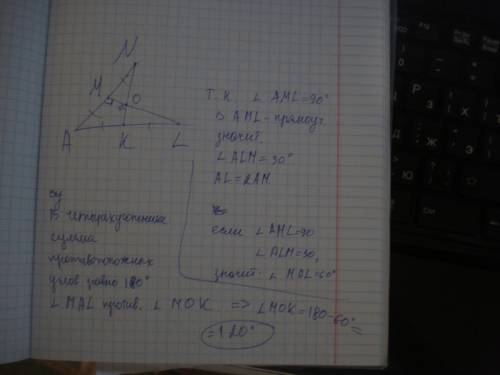 N
M
O
A
K
L
Т.К. ∠ AML=90°
AML-прямоуг.
значит.
∠ ALM=30°
AL=2AM
если ∠ AML=90
∠ ALM=30,
значит ∠ MAL=60°
В четырехугольнике
сумма
противоположных
углов равно 180°
∠ MAL против. ∠ MOK => ∠ MOK=180-60°=
=120°